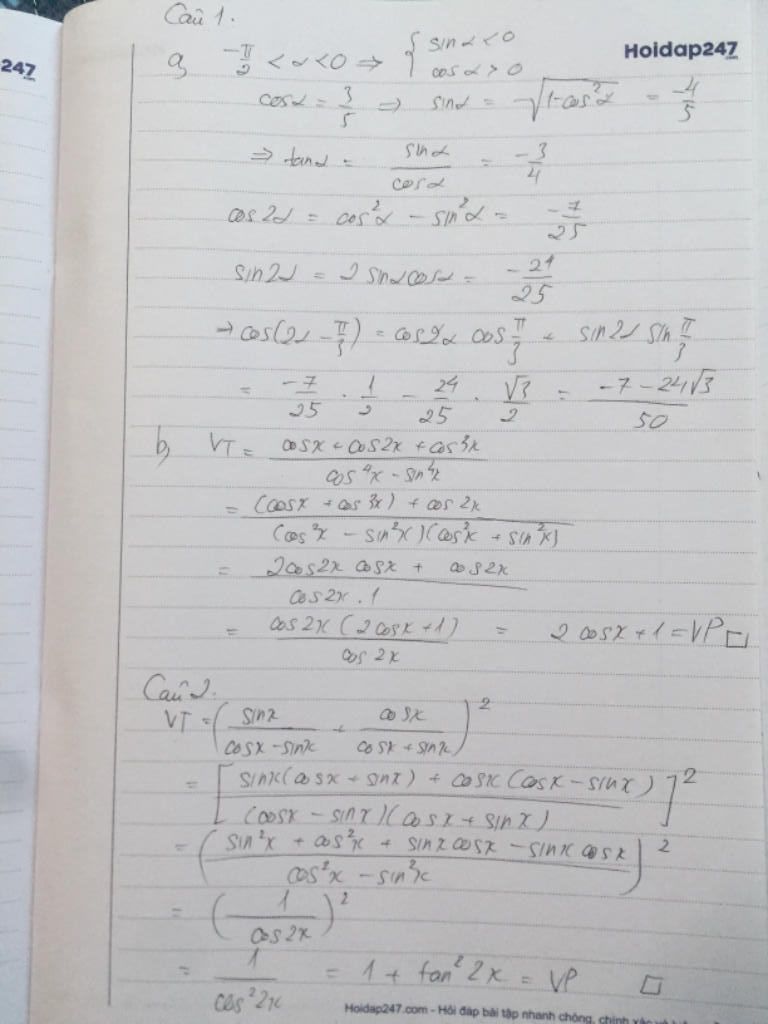 Câu 1.
247 Hoidap247.com
a, -π/2 < α < 0 ⇒ { sinα < 0
cosα > 0
cosα = 3/5 ⇒ sinα = -√(1-cos²α) = -4/5
⇒ tanα = sinα/cosα = -3/4
cos2α = cos²α - sin²α = -7/25
sin2α = 2sinαcosα = -24/25
→ cos(2α - π/3) = cos2α cos π/3 + sin2α sin π/3
= -7/25 · 1/2 - 24/25 · √3/2 = (-7 - 24√3)/50
b, VT = (cosx + cos2x + cos3x)/(cos⁴x - sin⁴x)
= ((cosx + cos3x) + cos2x)/((cos²x - sin²x)(cos²x + sin²x))
= (2cos2x cosx + cos2x)/(cos2x . 1)
= cos2x(2cosx+1)/cos2x = 2cosx + 1 = VP □
Câu 2.
VT = (sinx/(cosx - sinx) + cosx/(cosx + sinx))²
= [(sinx(cosx + sinx) + cosx(cosx - sinx))/((cosx - sinx)(cosx + sinx))]²
= ((sin²x + cos²x + sinxcosx - sinx cosx)/(cos²x - sin²x))²
= (1/cos2x)²
= 1/cos²2x = 1 + tan²2x = VP □
Hoidap247.com - Hỏi đáp bài tập nhanh chóng, chính xác và